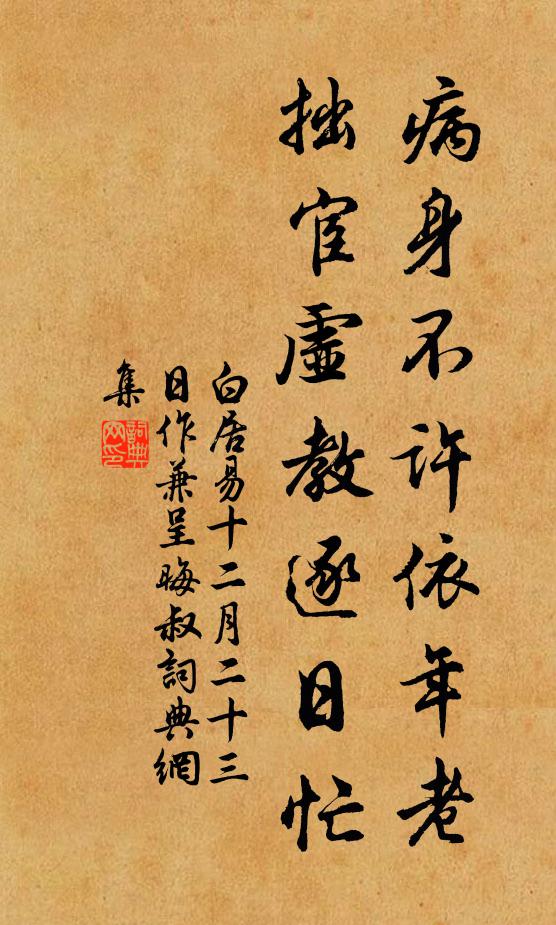 病身不許依年老
拙宦虛教逐日忙
白居易十二月二十三
日作兼呈晦叔詞典網
集
詞典
网印